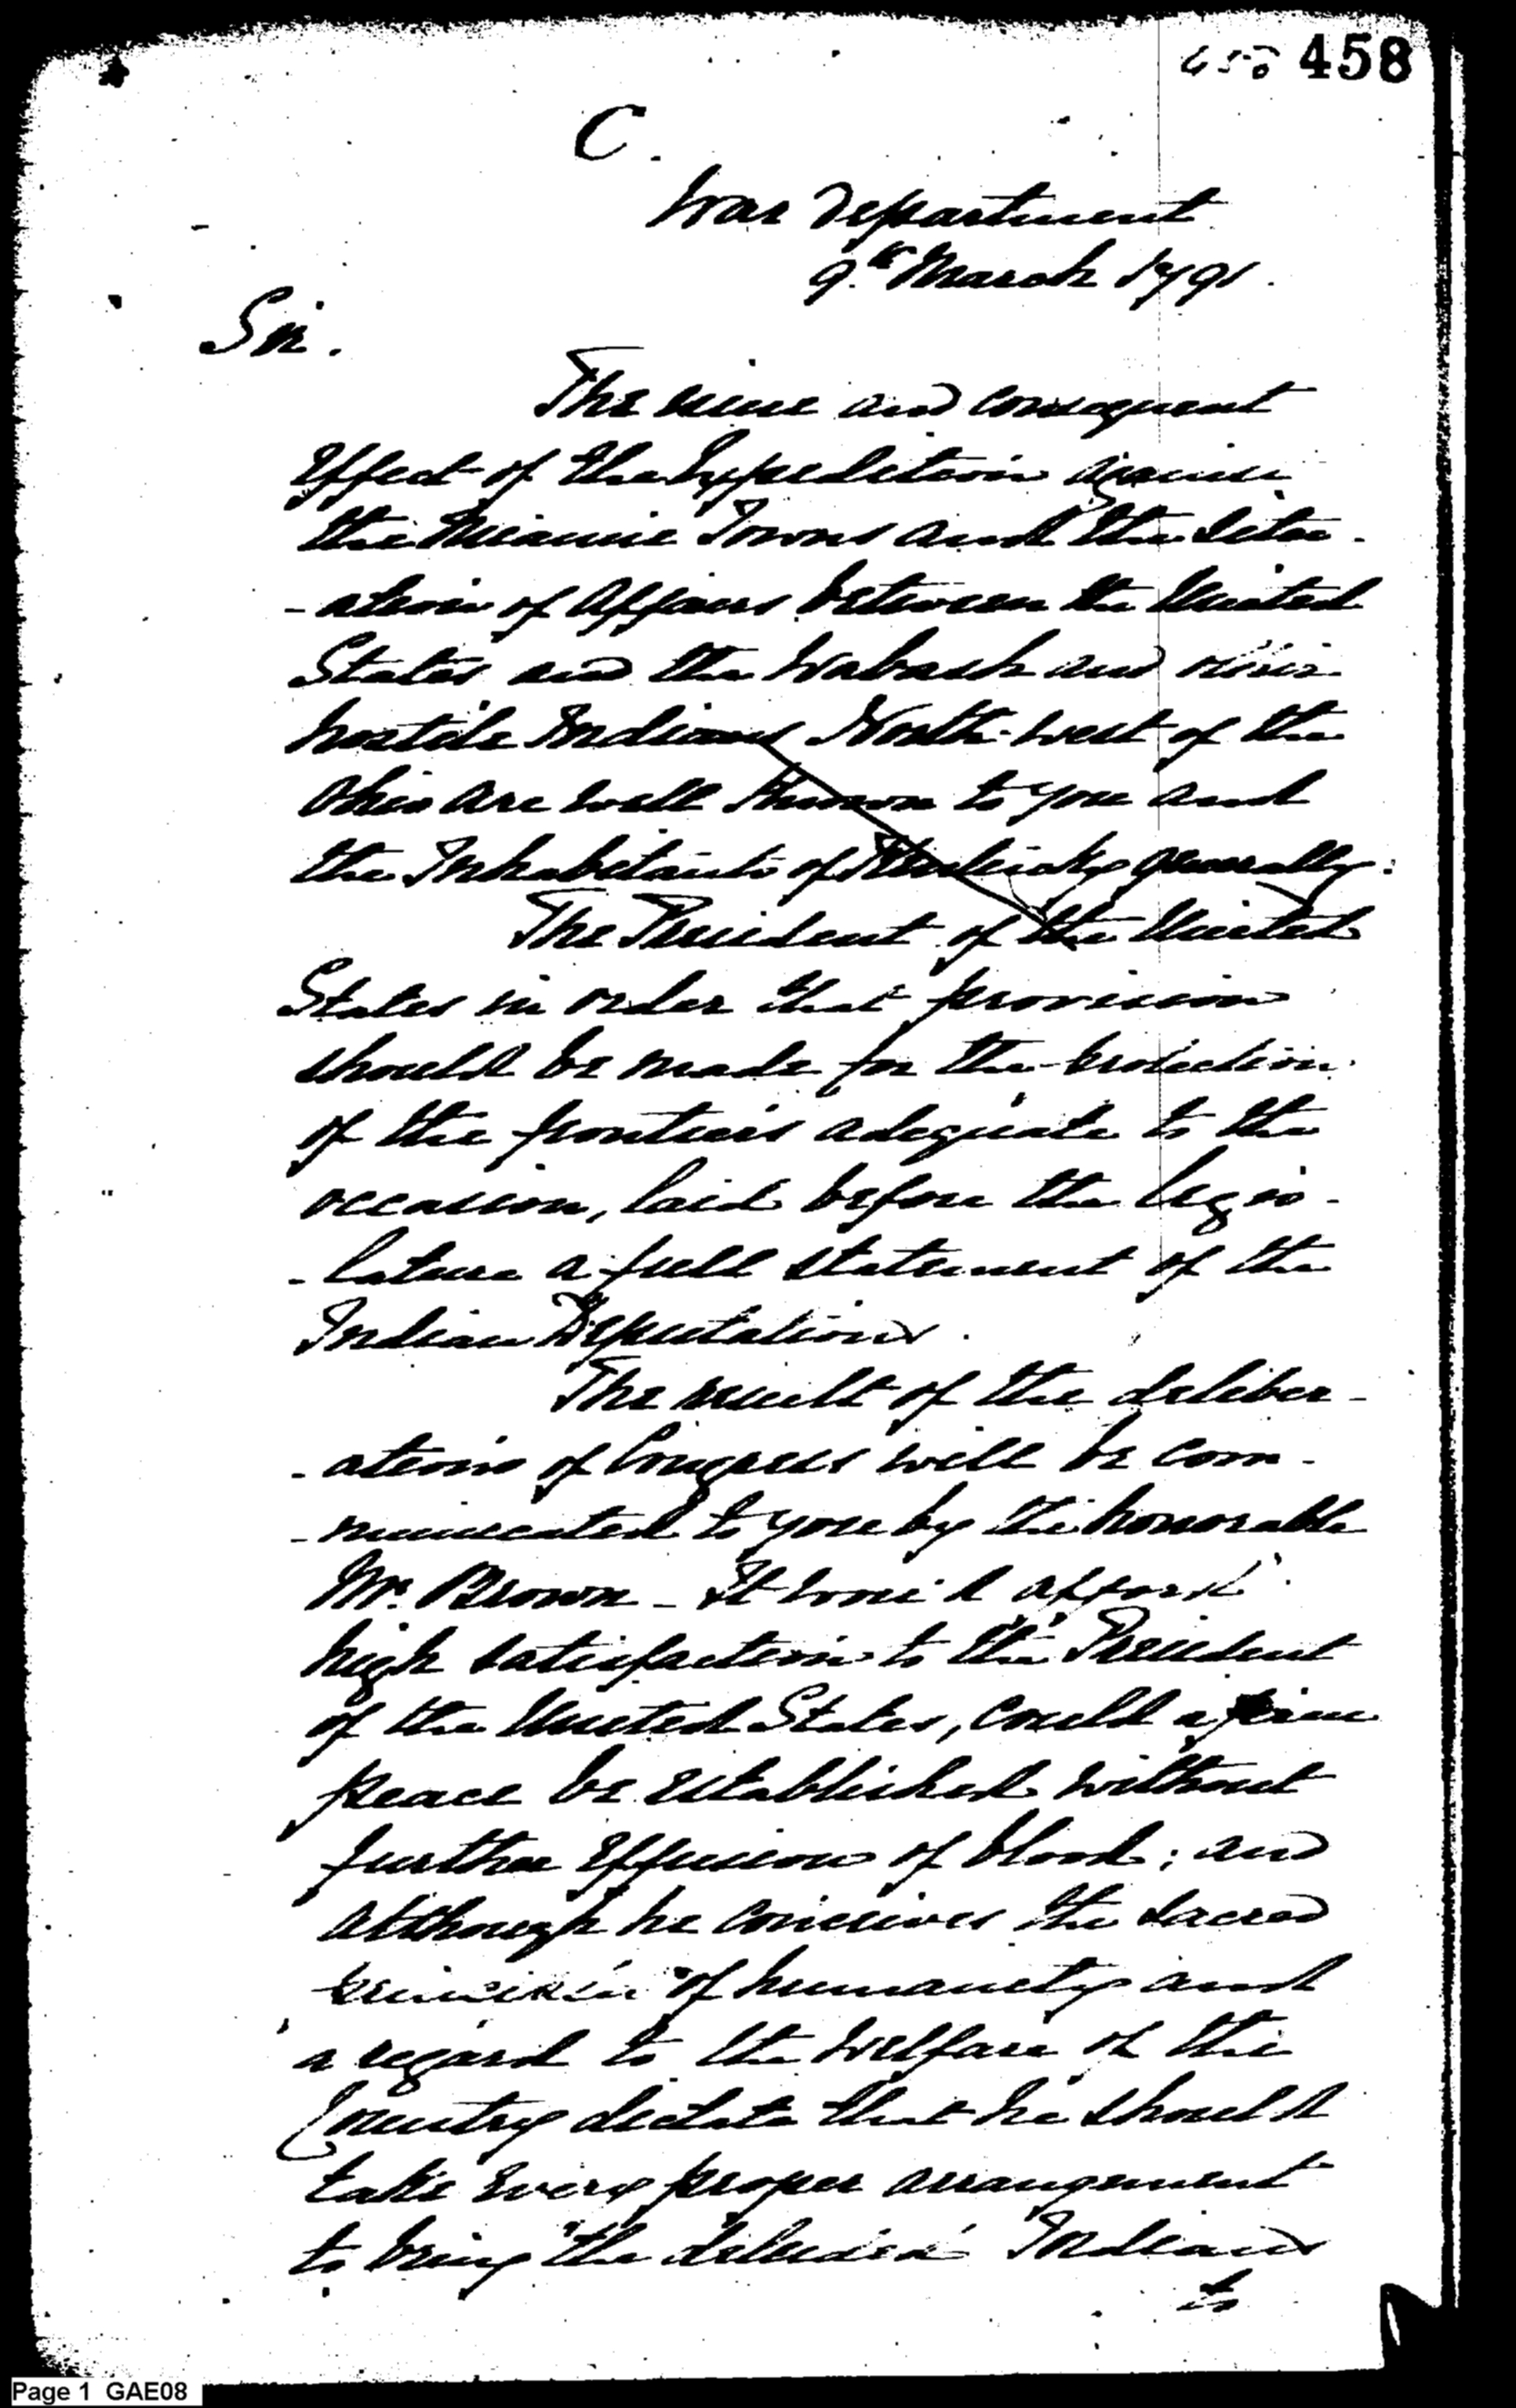 650 458
C.
War Department
9.th March 1791.
Sir.
The issue and consequent
Effect of the Expedition against
the Miami Towns and the situ-
-ation of Affairs between the United
States and the Wabash and other
hostile Indians North-west of the
Ohio are well known to you and
the Inhabitants of Kentucky generally.
The President of the United
States in order that provision
should be made for the protection
of the frontiers adequate to the
occasion, laid before the legis-
-lature a full statement of the
Indian Depredations.
The result of the deliber-
-ations of Congress will be com-
-municated to you by the honorable
Mr. Brown - It would afford
high satisfaction to the President
of the United States, could a firm
peace be established without
further Effusion of blood; and
although he conceives the sacred
principles of humanity and
a regard to the welfare of the
Country dictate that he should
take every proper arrangement
to bring the deluded Indians
to
Page 1 GAE08